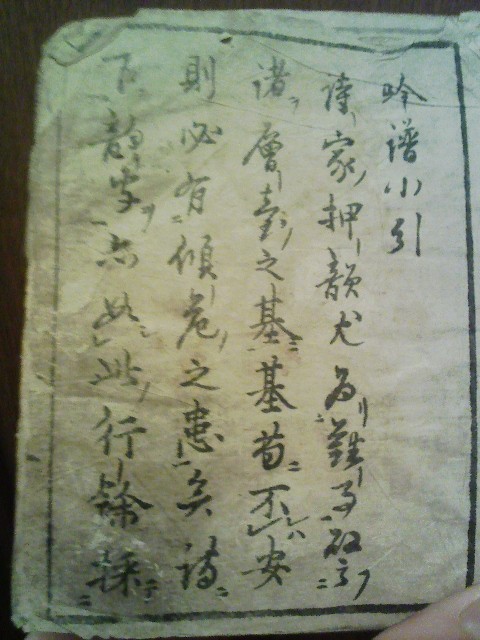 吟譜小引
詩家押韻尤為難事
諸層臺之基基苟不安
則必有傾危之患矣詩
下韻字亦如此行餘採